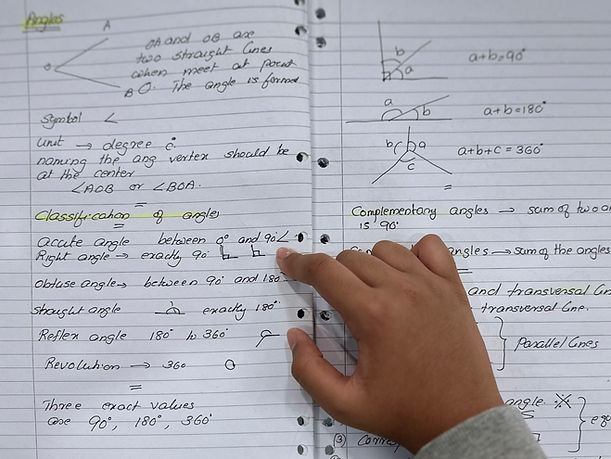 Angles
A
O
B
OA and OB are
two straight lines
when meet at point
O. The angle is formed
Symbol ∠
Unit → degree
naming the ang vertex should be
at the center
∠AOB or ∠BOA.
Classification of angles
accute angle between 0° and 90° ∠
Right angle → exactly 90°
obtuse angle → between 90° and 180°
straight angle exactly 180°
Reflex angle 180° to 360°
Revolution → 360
Three exact values
are 90°, 180°, 360°
b
a
a+b=90°
a
b
a+b=180°
b
a
c
a+b+c = 360°
Complementary angles → sum of two
is 90°
angles → sum of the angles
and transversal
transversal line.
Parallel lines
angle
(3)